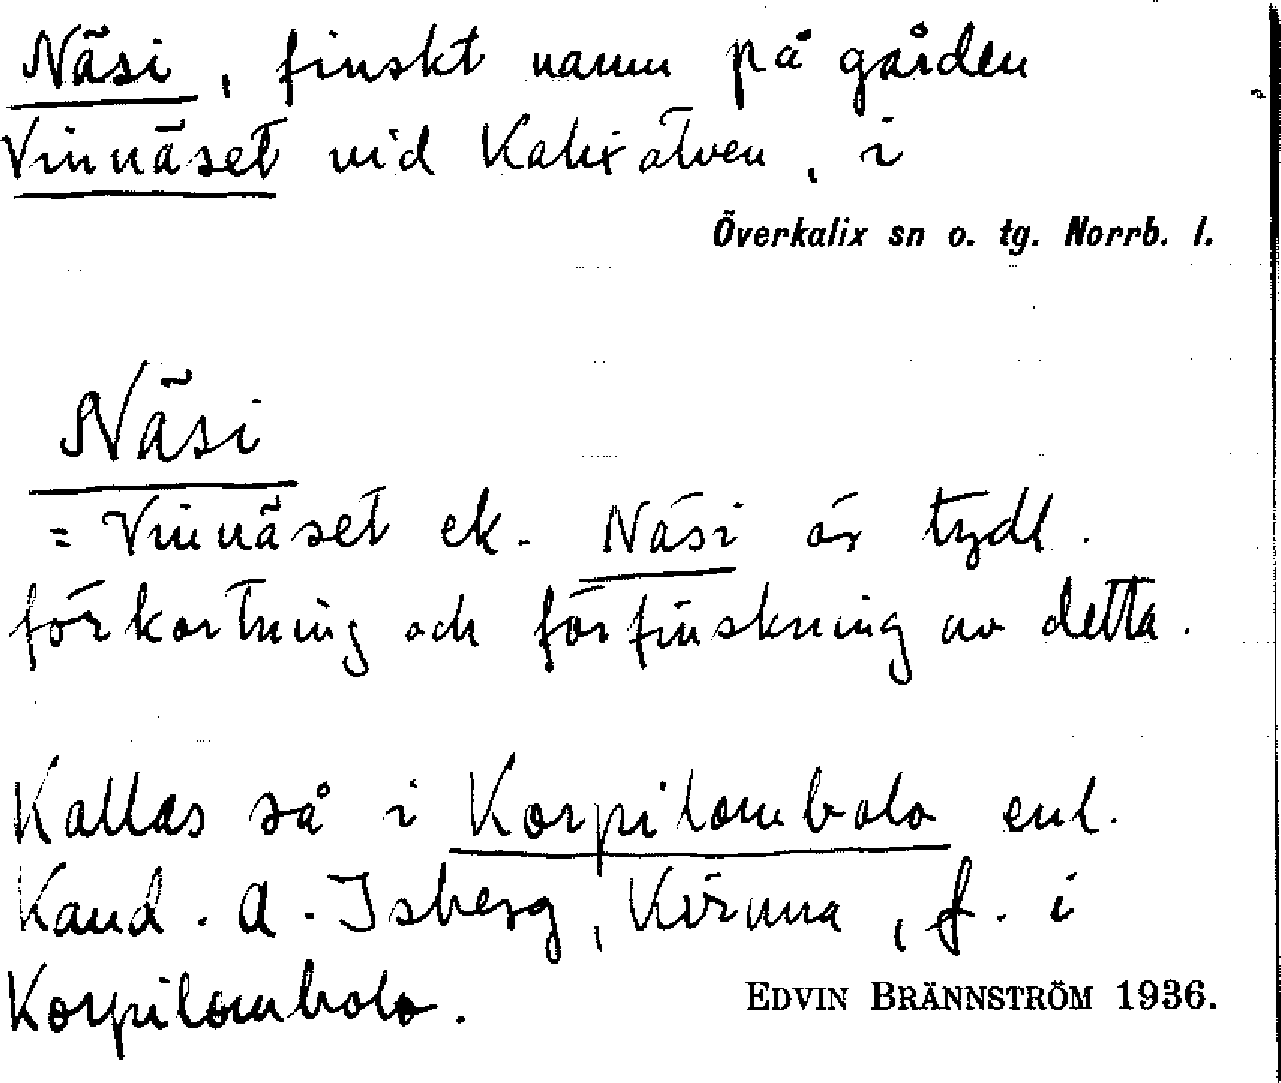 Näsi, finskt namn på gården
Vinnäset vid Kalixälven, i
Överkalix sn o. tg. Norrb. l.
Näsi
= Vinnäset ek. Näsi är tydl.
förkortning och förfinskning av detta.
Kallas så i Korpilombolo enl.
Kand. A. Isberg, Kiruna, f. i
Korpilombolo.
EDVIN BRÄNNSTRÖM 1936.